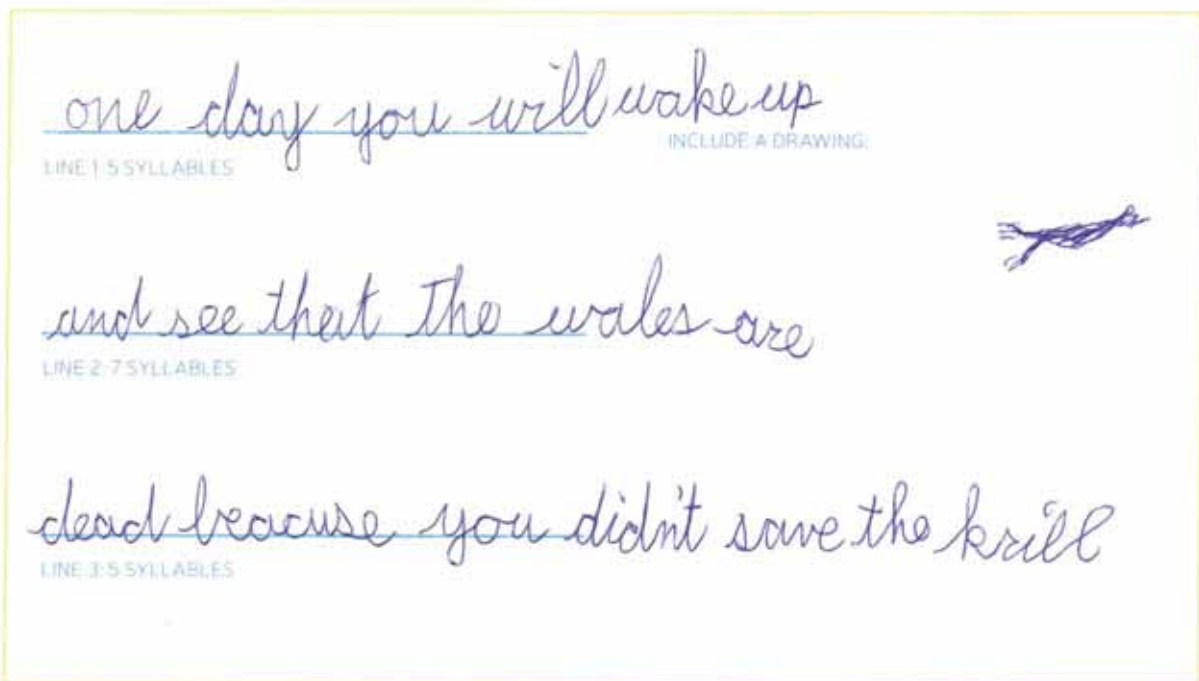 one day you will wake up
INCLUDE A DRAWING:
LINE 1: 5 SYLLABLES
and see that The wales are
LINE 2: 7 SYLLABLES
dead beacuse you didn't save the krill
LINE 3: 5 SYLLABLES